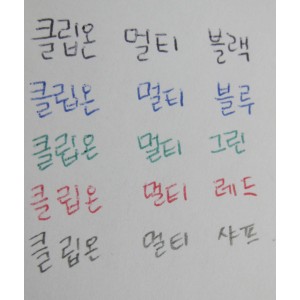 클립온 멀티 블랙
클립온 멀티 블루
클립온 멀티 그린
클립온 멀티 레드
클립온 멀티 샤프